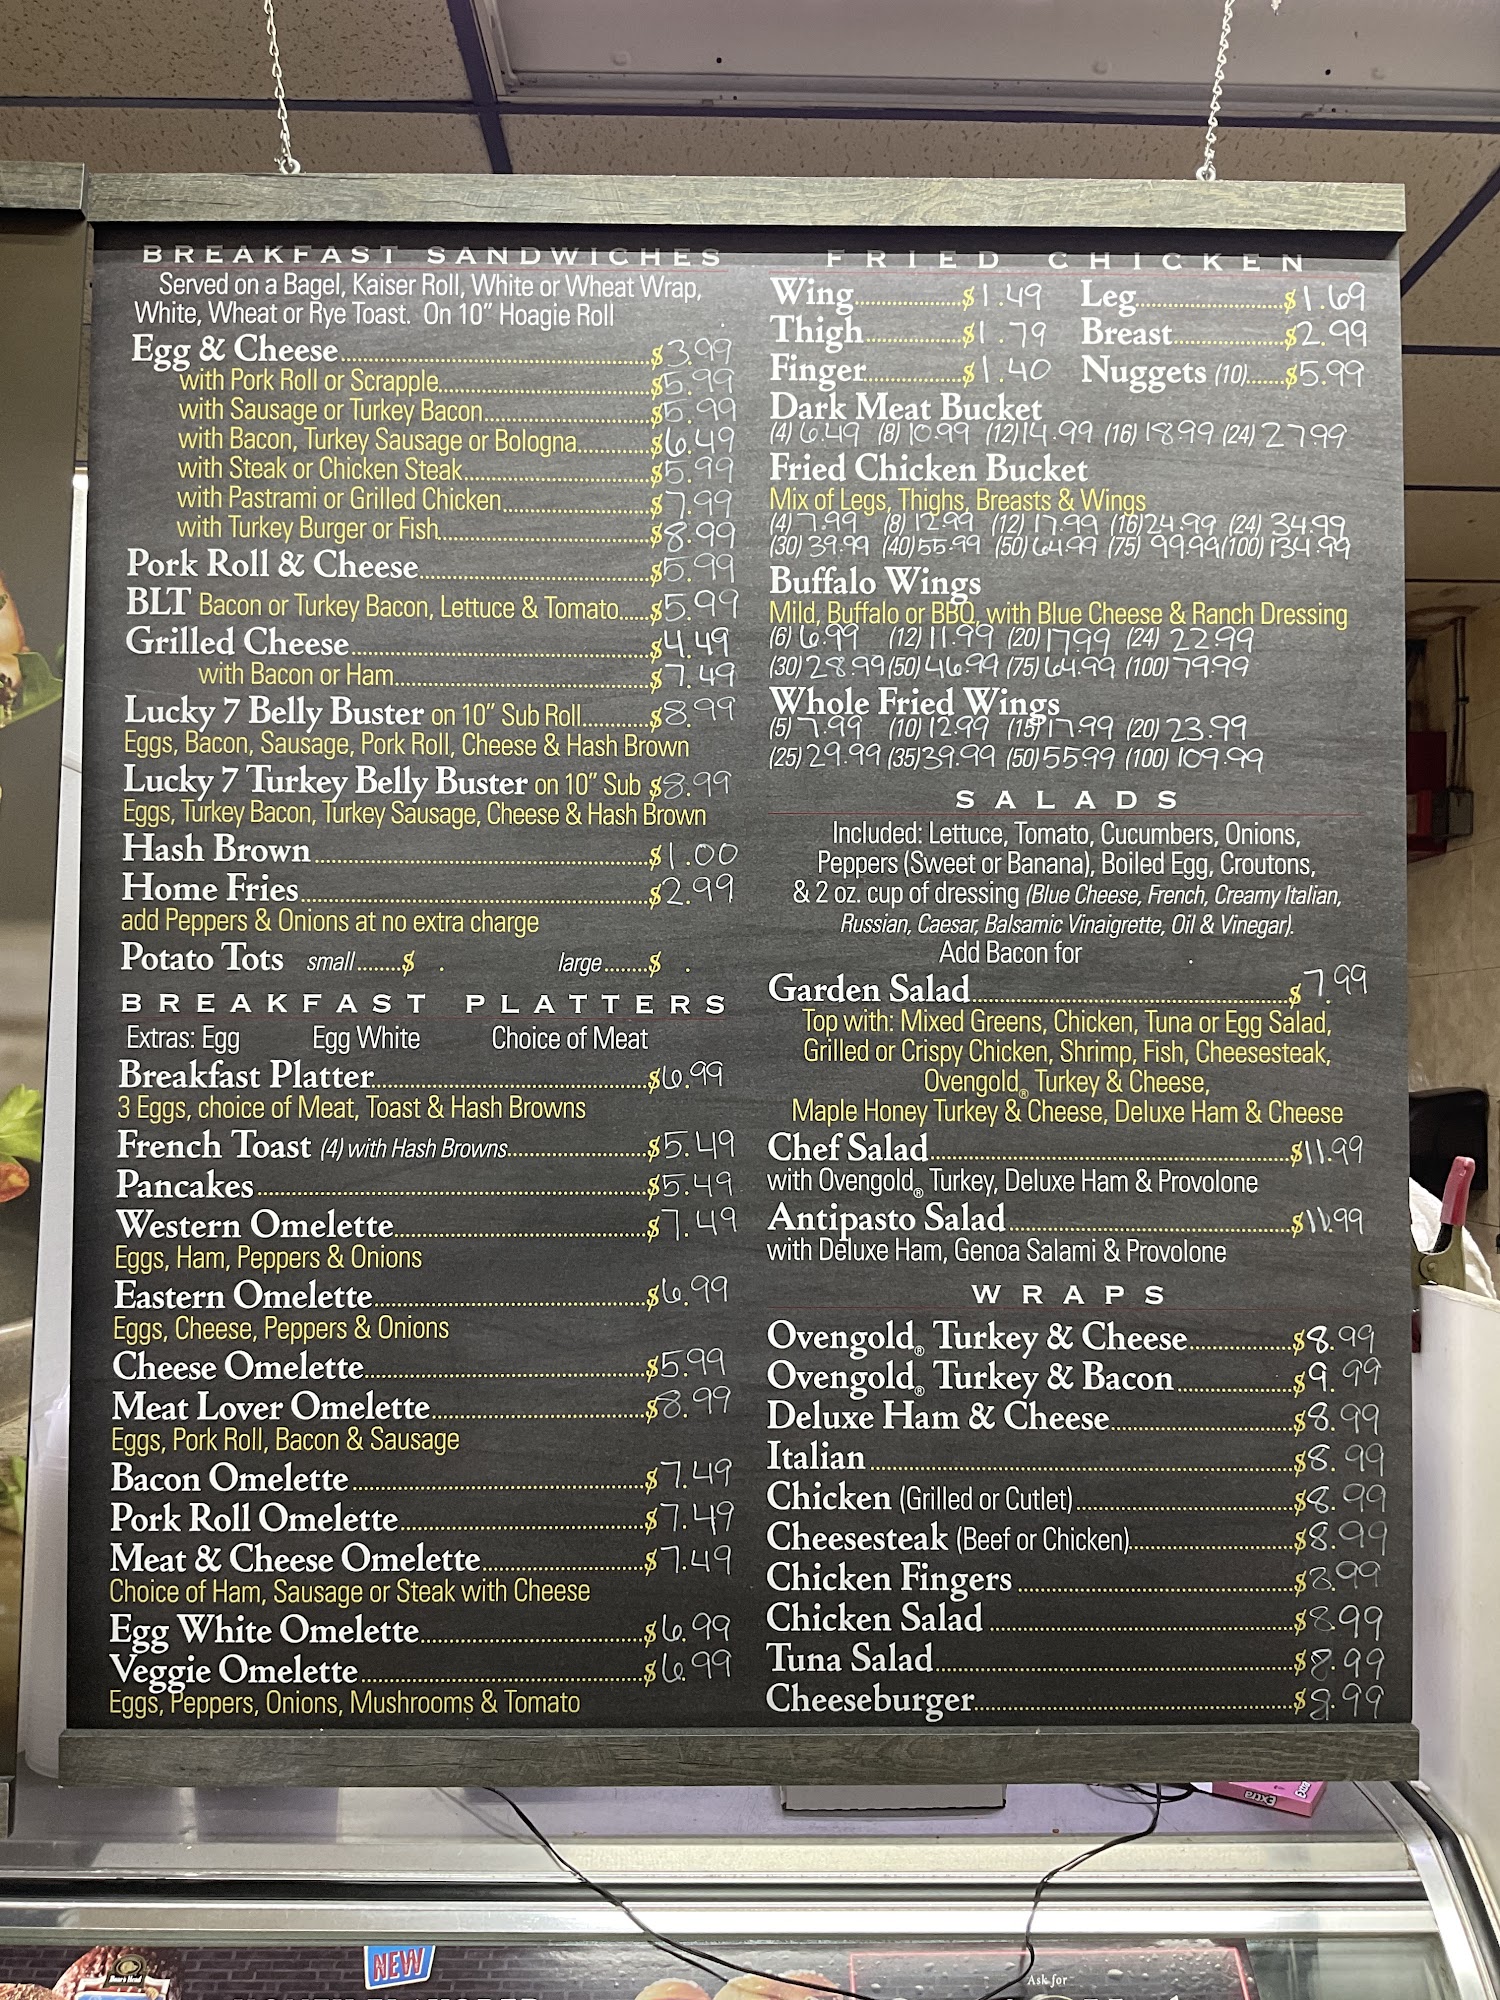 BREAKFAST SANDWICHES
Served on a Bagel, Kaiser Roll, White or Wheat Wrap,
White, Wheat or Rye Toast. On 10" Hoagie Roll
Egg & Cheese $3.99
with Pork Roll or Scrapple $5.99
with Sausage or Turkey Bacon $5.99
with Bacon, Turkey Sausage or Bologna $6.49
with Steak or Chicken Steak $5.99
with Pastrami or Grilled Chicken $7.99
with Turkey Burger or Fish $8.99
Pork Roll & Cheese $5.99
BLT Bacon or Turkey Bacon, Lettuce & Tomato $5.99
Grilled Cheese $4.49
with Bacon or Ham $7.49
Lucky 7 Belly Buster on 10" Sub Roll $8.99
Eggs, Bacon, Sausage, Pork Roll, Cheese & Hash Brown
Lucky 7 Turkey Belly Buster on 10" Sub $8.99
Eggs, Turkey Bacon, Turkey Sausage, Cheese & Hash Brown
Hash Brown $1.00
Home Fries $2.99
add Peppers & Onions at no extra charge
Potato Tots small $ . large $ .
BREAKFAST PLATTERS
Extras: Egg Egg White Choice of Meat
Breakfast Platter $6.99
3 Eggs, choice of Meat, Toast & Hash Browns
French Toast (4) with Hash Browns $5.49
Pancakes $5.49
Western Omelette $7.49
Eggs, Ham, Peppers & Onions
Eastern Omelette $6.99
Eggs, Cheese, Peppers & Onions
Cheese Omelette $5.99
Meat Lover Omelette $8.99
Eggs, Pork Roll, Bacon & Sausage
Bacon Omelette $7.49
Pork Roll Omelette $7.49
Meat & Cheese Omelette $7.49
Choice of Ham, Sausage or Steak with Cheese
Egg White Omelette $6.99
Veggie Omelette $6.99
Eggs, Peppers, Onions, Mushrooms & Tomato
FRIED CHICKEN
Wing $1.49 Leg $1.69
Thigh $1.79 Breast $2.99
Finger $1.40 Nuggets (10) $5.99
Dark Meat Bucket
(4) 6.49 (8) 10.99 (12) 14.99 (16) 18.99 (24) 27.99
Fried Chicken Bucket
Mix of Legs, Thighs, Breasts & Wings
(4) 7.99 (8) 12.99 (12) 17.99 (16) 24.99 (24) 34.99
(30) 39.99 (40) 55.99 (50) 64.99 (75) 99.99 (100) 134.99
Buffalo Wings
Mild, Buffalo or BBQ, with Blue Cheese & Ranch Dressing
(6) 6.99 (12) 11.99 (20) 17.99 (24) 22.99
(30) 28.99 (50) 46.99 (75) 64.99 (100) 79.99
Whole Fried Wings
(5) 7.99 (10) 12.99 (15) 17.99 (20) 23.99
(25) 29.99 (35) 39.99 (50) 55.99 (100) 109.99
SALADS
Included: Lettuce, Tomato, Cucumbers, Onions,
Peppers (Sweet or Banana), Boiled Egg, Croutons,
& 2 oz. cup of dressing (Blue Cheese, French, Creamy Italian,
Russian, Caesar, Balsamic Vinaigrette, Oil & Vinegar).
Add Bacon for .
Garden Salad $7.99
Top with: Mixed Greens, Chicken, Tuna or Egg Salad,
Grilled or Crispy Chicken, Shrimp, Fish, Cheesesteak,
Ovengold® Turkey & Cheese,
Maple Honey Turkey & Cheese, Deluxe Ham & Cheese
Chef Salad $11.99
with Ovengold® Turkey, Deluxe Ham & Provolone
Antipasto Salad $11.99
with Deluxe Ham, Genoa Salami & Provolone
WRAPS
Ovengold® Turkey & Cheese $8.99
Ovengold® Turkey & Bacon $9.99
Deluxe Ham & Cheese $8.99
Italian $8.99
Chicken (Grilled or Cutlet) $8.99
Cheesesteak (Beef or Chicken) $8.99
Chicken Fingers $8.99
Chicken Salad $8.99
Tuna Salad $8.99
Cheeseburger $8.99
extra
Boar's Head
NEW
Ask for